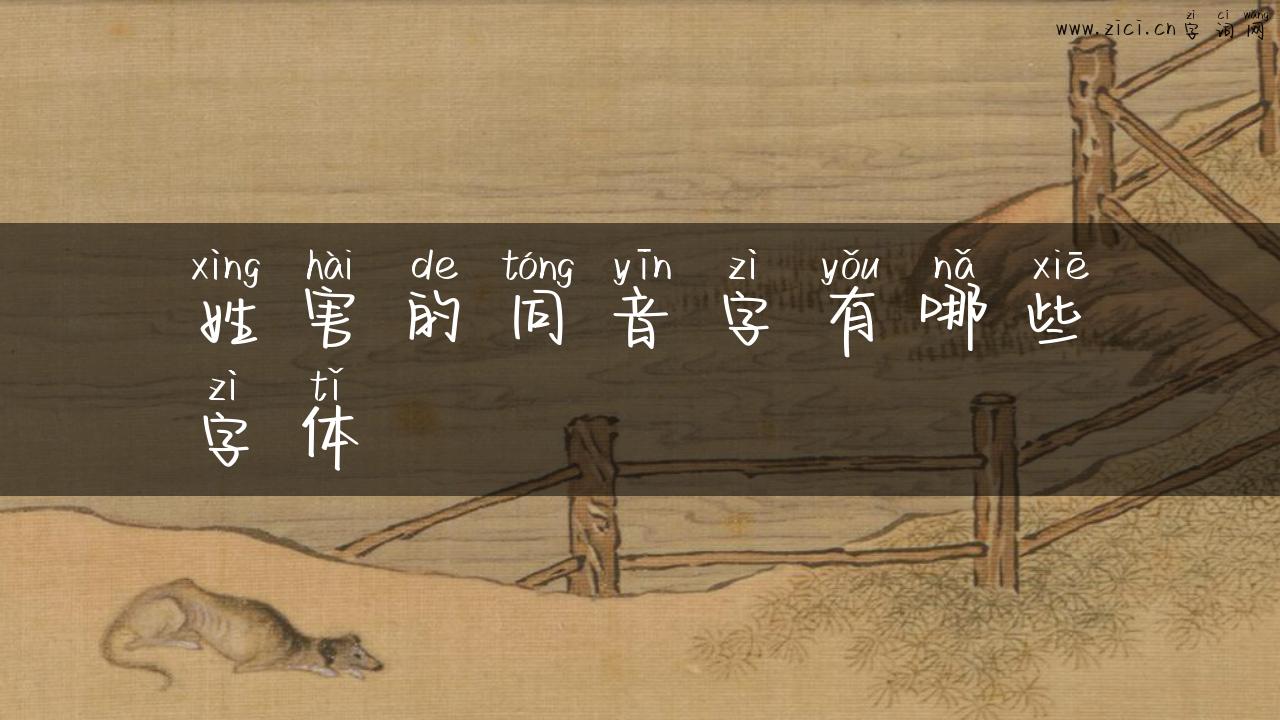 zì cí wǎng
www.zici.cn字词网
xìng hài de tóng yīn zì yǒu nǎ xiē
姓害的同音字有哪些
zì tǐ
字体